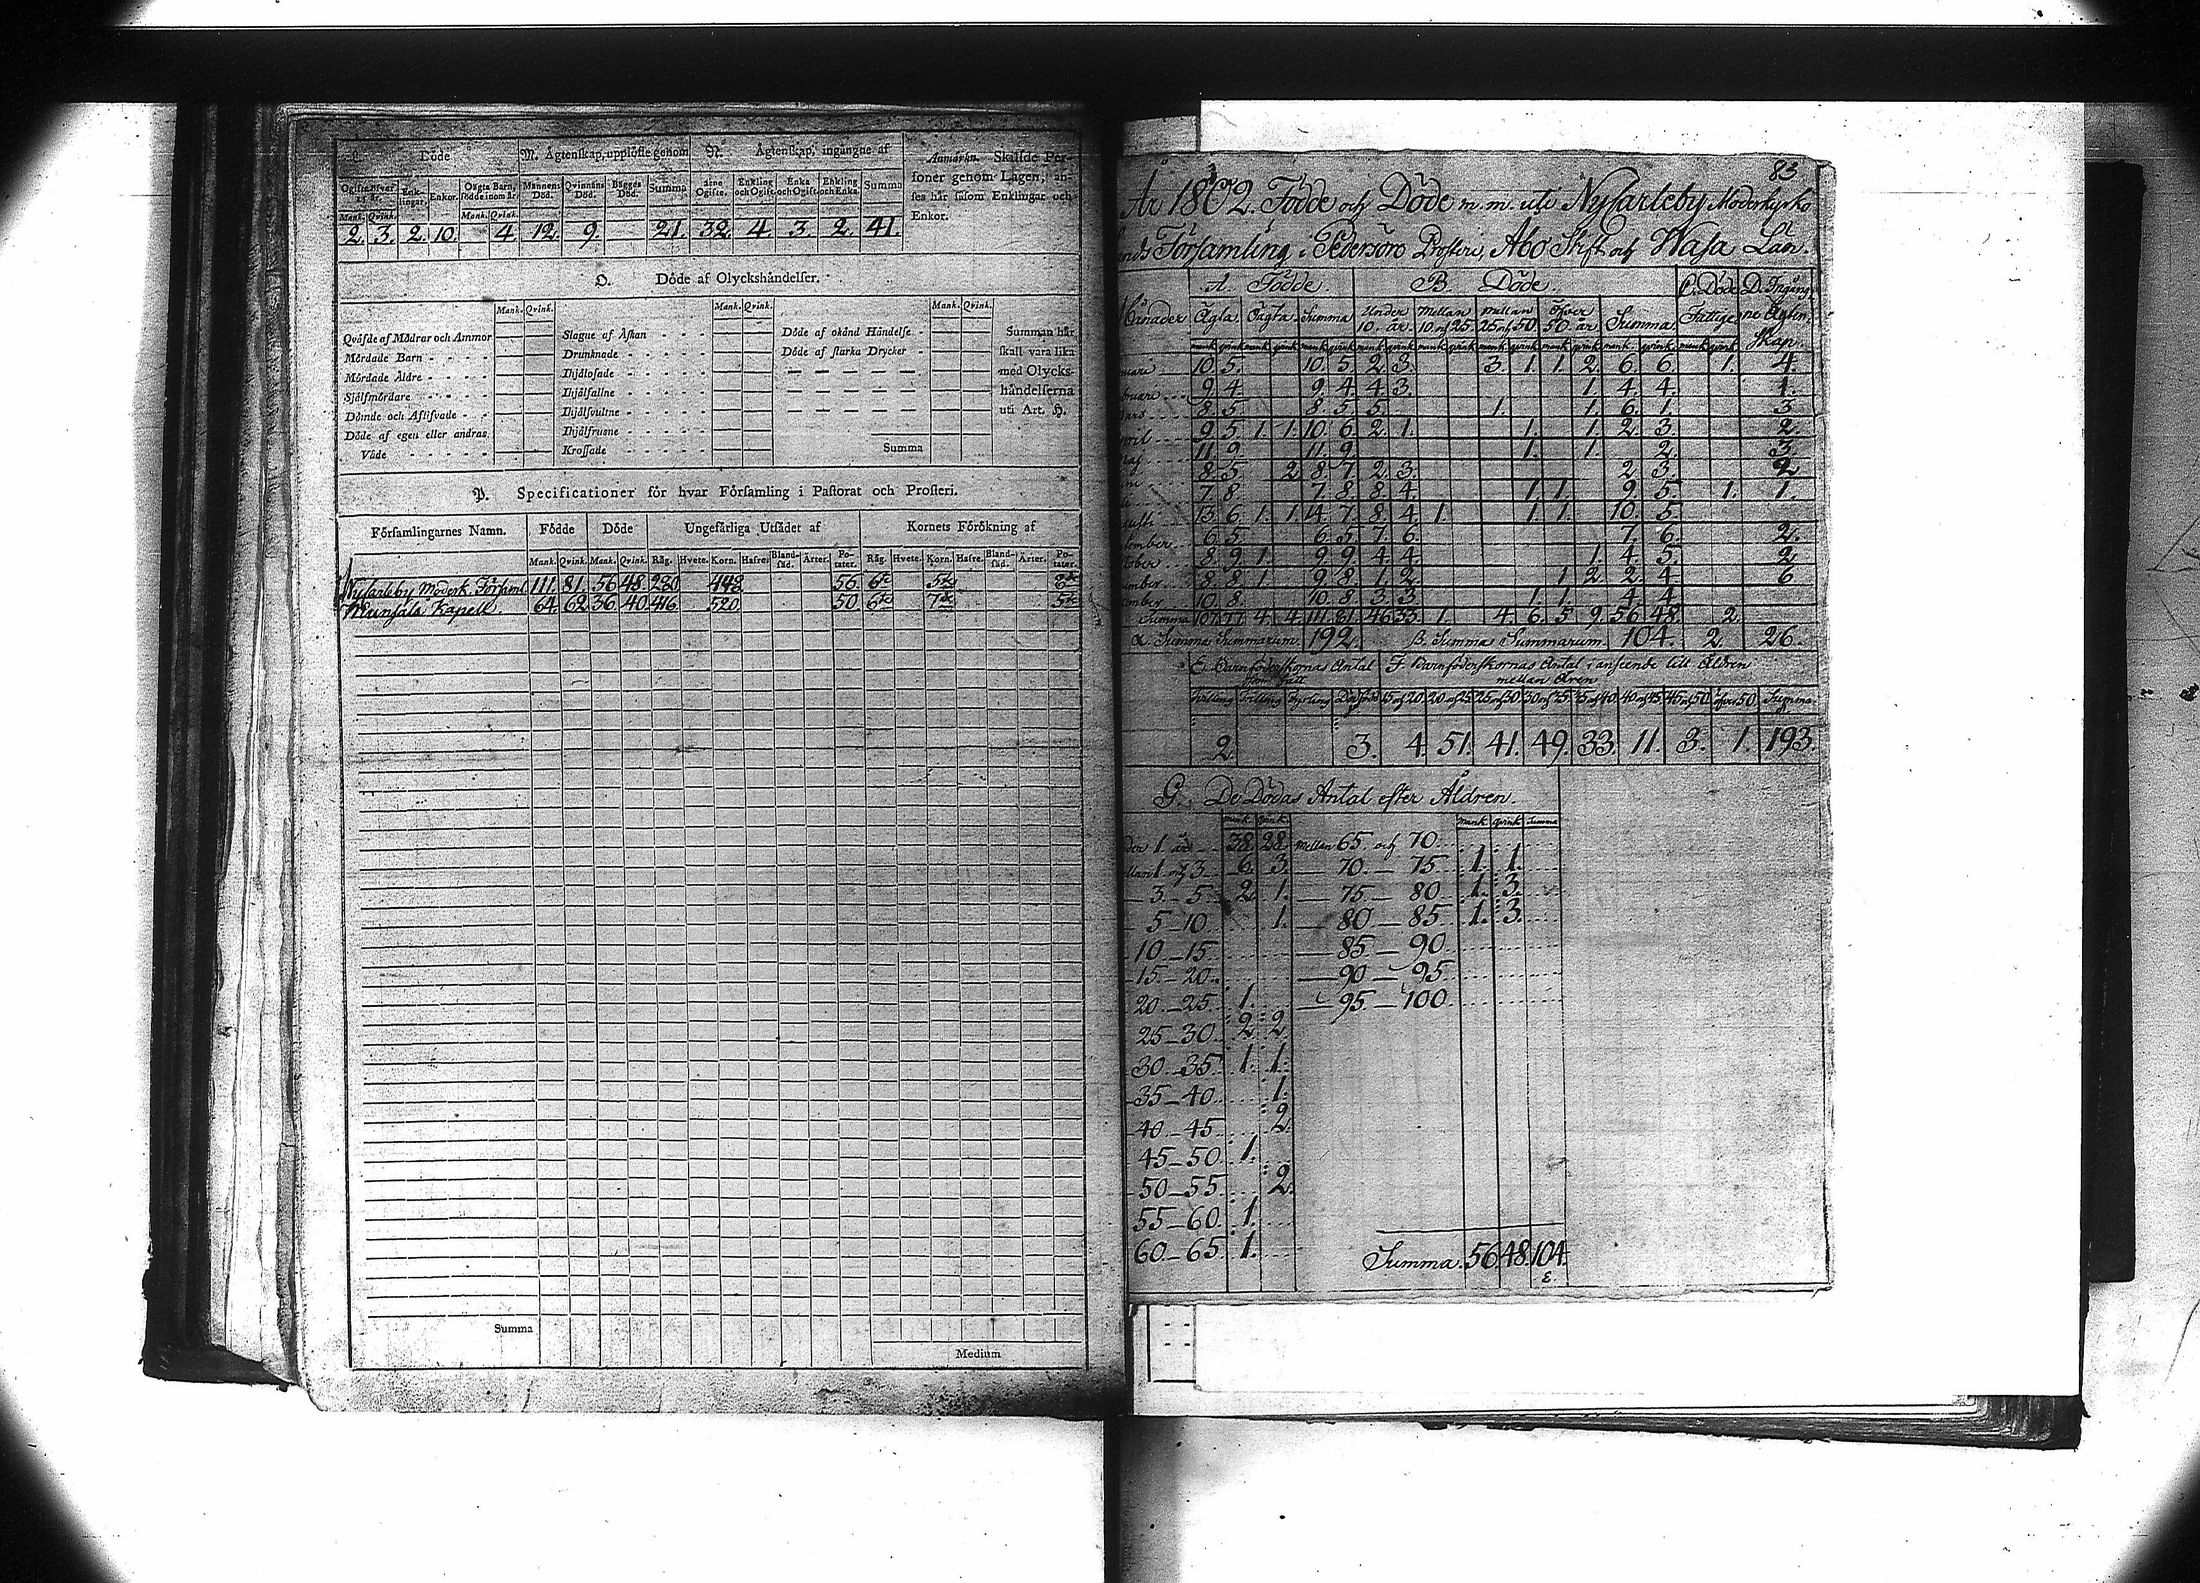 L. Döde
M. Ägtenskap, upplöste genom
N. Ägtenskap, ingångne af
Anmärkn. Skilllde Per-
soner genom Lagen, an-
ses här såsom Enklingar och
Enkor.
Ogifta öfver 15 år. Enk-lingar. Enkor. Oägta Barn, födde inom år. Mannens Död. Qvinnans Död. Bägges Död. Summa Ogifte. Enkling och Ogift. Enka och Ogift. Enkling och Enka. Summa
Mank. Qvink. Mank. Qvink.
2. 3. 2. 10. 4. 12. 9. 21. 32. 4. 3. 2. 41.
O. Döde af Olyckshändelser.
Mank. Qvink. Mank. Qvink. Mank. Qvink.
Qväfde af Mödrar och Ammor
Mördade Barn
Mördade Äldre
Sjelfmördare
Dömde och Aflifvade
Döde af egen eller andras
Våde
Slagne af Åskan
Drunknade
Ihjälosade
Ihjälfallne
Ihjälsvultne
Ihjälfrusne
Krossade
Döde af okänd Händelse
Döde af starka Drycker
Summa
Summan här
skall vara lika
med Olycks-
händelserna
uti Art. H.
P. Specificationer för hvar Församling i Pastorat och Prosteri.
Församlingarnes Namn. Födde Döde Ungefärliga Utsädet af Kornets Förökning af
Mank. Qvink. Mank. Qvink. Råg. Hvete. Korn. Hafre. Bland-säd. Ärter. Po-tater. Råg. Hvete. Korn. Hafre. Bland-säd. Ärter. Po-tater.
Nykarleby Moderk. Församl 111. 81. 56 48 280 448 56
Munsala Kapell 64 62 36 40 416 520 50
Summa
Medium
83
År 1802. Födde och Döde m.m. uti Nykarleby Moderkyrko
Församling i Pedersöro Prosteri, Åbo Stift och Wasa Län.
A. Födde B. Döde C. Döde D. Ingång-
Månader Ägta Oägta Summa Under 10. år Mellan 10 och 25 Mellan 25 och 50 Öfver 50 år Summa Fattige ne Ägten-
skap
10. 5. 10. 5. 2. 3. 3. 1. 1. 2. 6. 6. 1. 4.
9. 4. 9. 4. 4. 3. 1. 4. 4. 1.
8. 5. 8. 5. 5. 1. 1. 6. 1. 3
9. 5. 1. 1. 10. 6. 2. 1. 1. 1. 2. 3. 2.
11. 9. 11. 9. 1. 1. 2. 3.
8. 5. 2. 8. 7. 2. 3. 2. 3. 2
7. 8. 7. 8. 8. 4. 1. 1. 9. 5. 1. 1.
13. 6. 1. 1. 14. 7. 8. 4. 1. 1. 1. 10. 5
6. 5. 6. 5. 7. 6. 7. 6. 2.
8. 9. 1. 9. 9. 4. 4. 1. 4. 5. 2
8. 8. 1. 9. 8. 1. 2. 1 2. 2. 4. 6
10. 8. 10. 8. 3. 3. 1. 1. 4. 4.
Summa 107. 77. 4. 4. 111. 81. 46. 33. 1. 4. 6. 5. 9. 56. 48. 2.
α. Summa Summarum. 192. β. Summa Summarum. 104. 2. 26.
E. Barnföderskornas Antal F. Barnföderskornas Antal i anseende till Åldren
som fått mellan åren
15 och 20 20 och 25 25 och 30 30 och 35 35 och 40 40 och 45 45 och 50 öfver 50 Summa
2. 3. 4. 51. 41. 49. 33. 11. 3. 1. 193.
G. De Dödas Antal efter Åldren.
mank qvink mank qvink Summa
1. år 38. 28. mellan 65 och 70
1. och 3 6. 3. 70 — 75 1. 1.
3 — 5 2. 1. 75 — 80 1. 3.
5 — 10 1. 80 — 85 1. 3.
10 — 15 85 — 90
15 — 20 90 — 95
20 — 25 1. 95 — 100
25 — 30 2. 2
30 — 35 1. 1.
35 — 40 1.
40 — 45 2.
45 — 50 1.
50 — 55 2.
55 — 60 1.
60 — 65 1. Summa. 56. 48. 104.